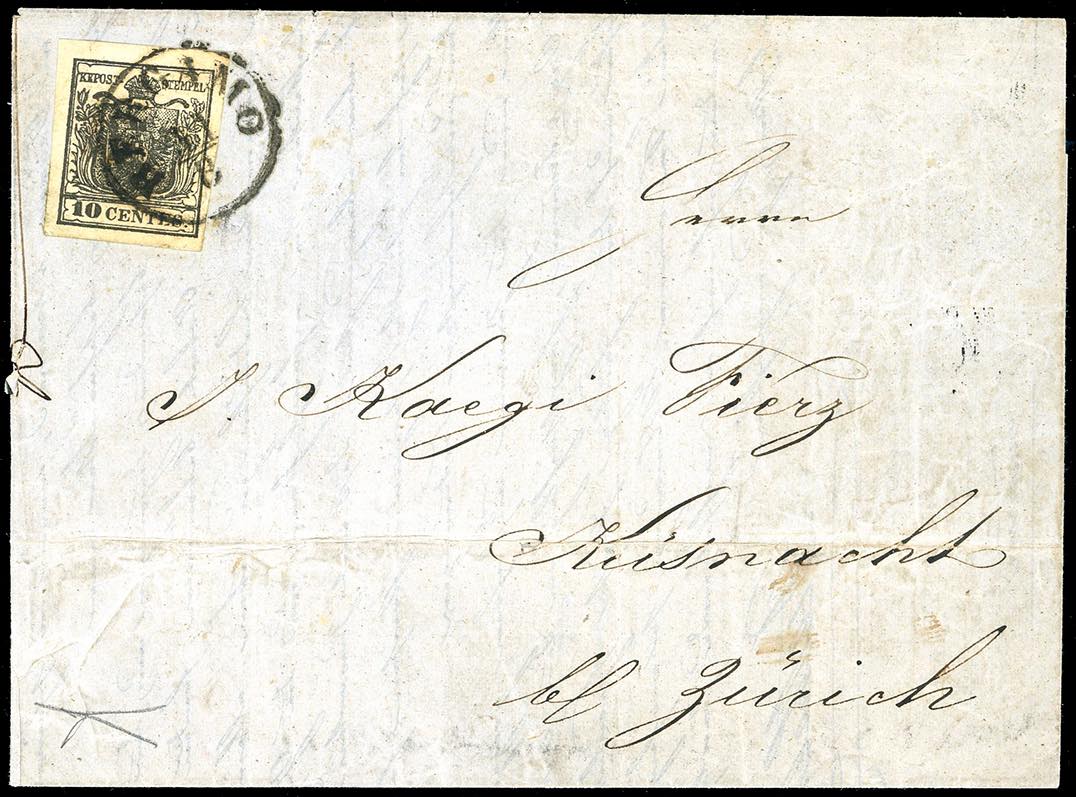 KKPOST-STEMPEL
10 CENTES.
BERGAMO
Herrn
J. Kaegi Fierz
Küsnacht
b/ Zürich